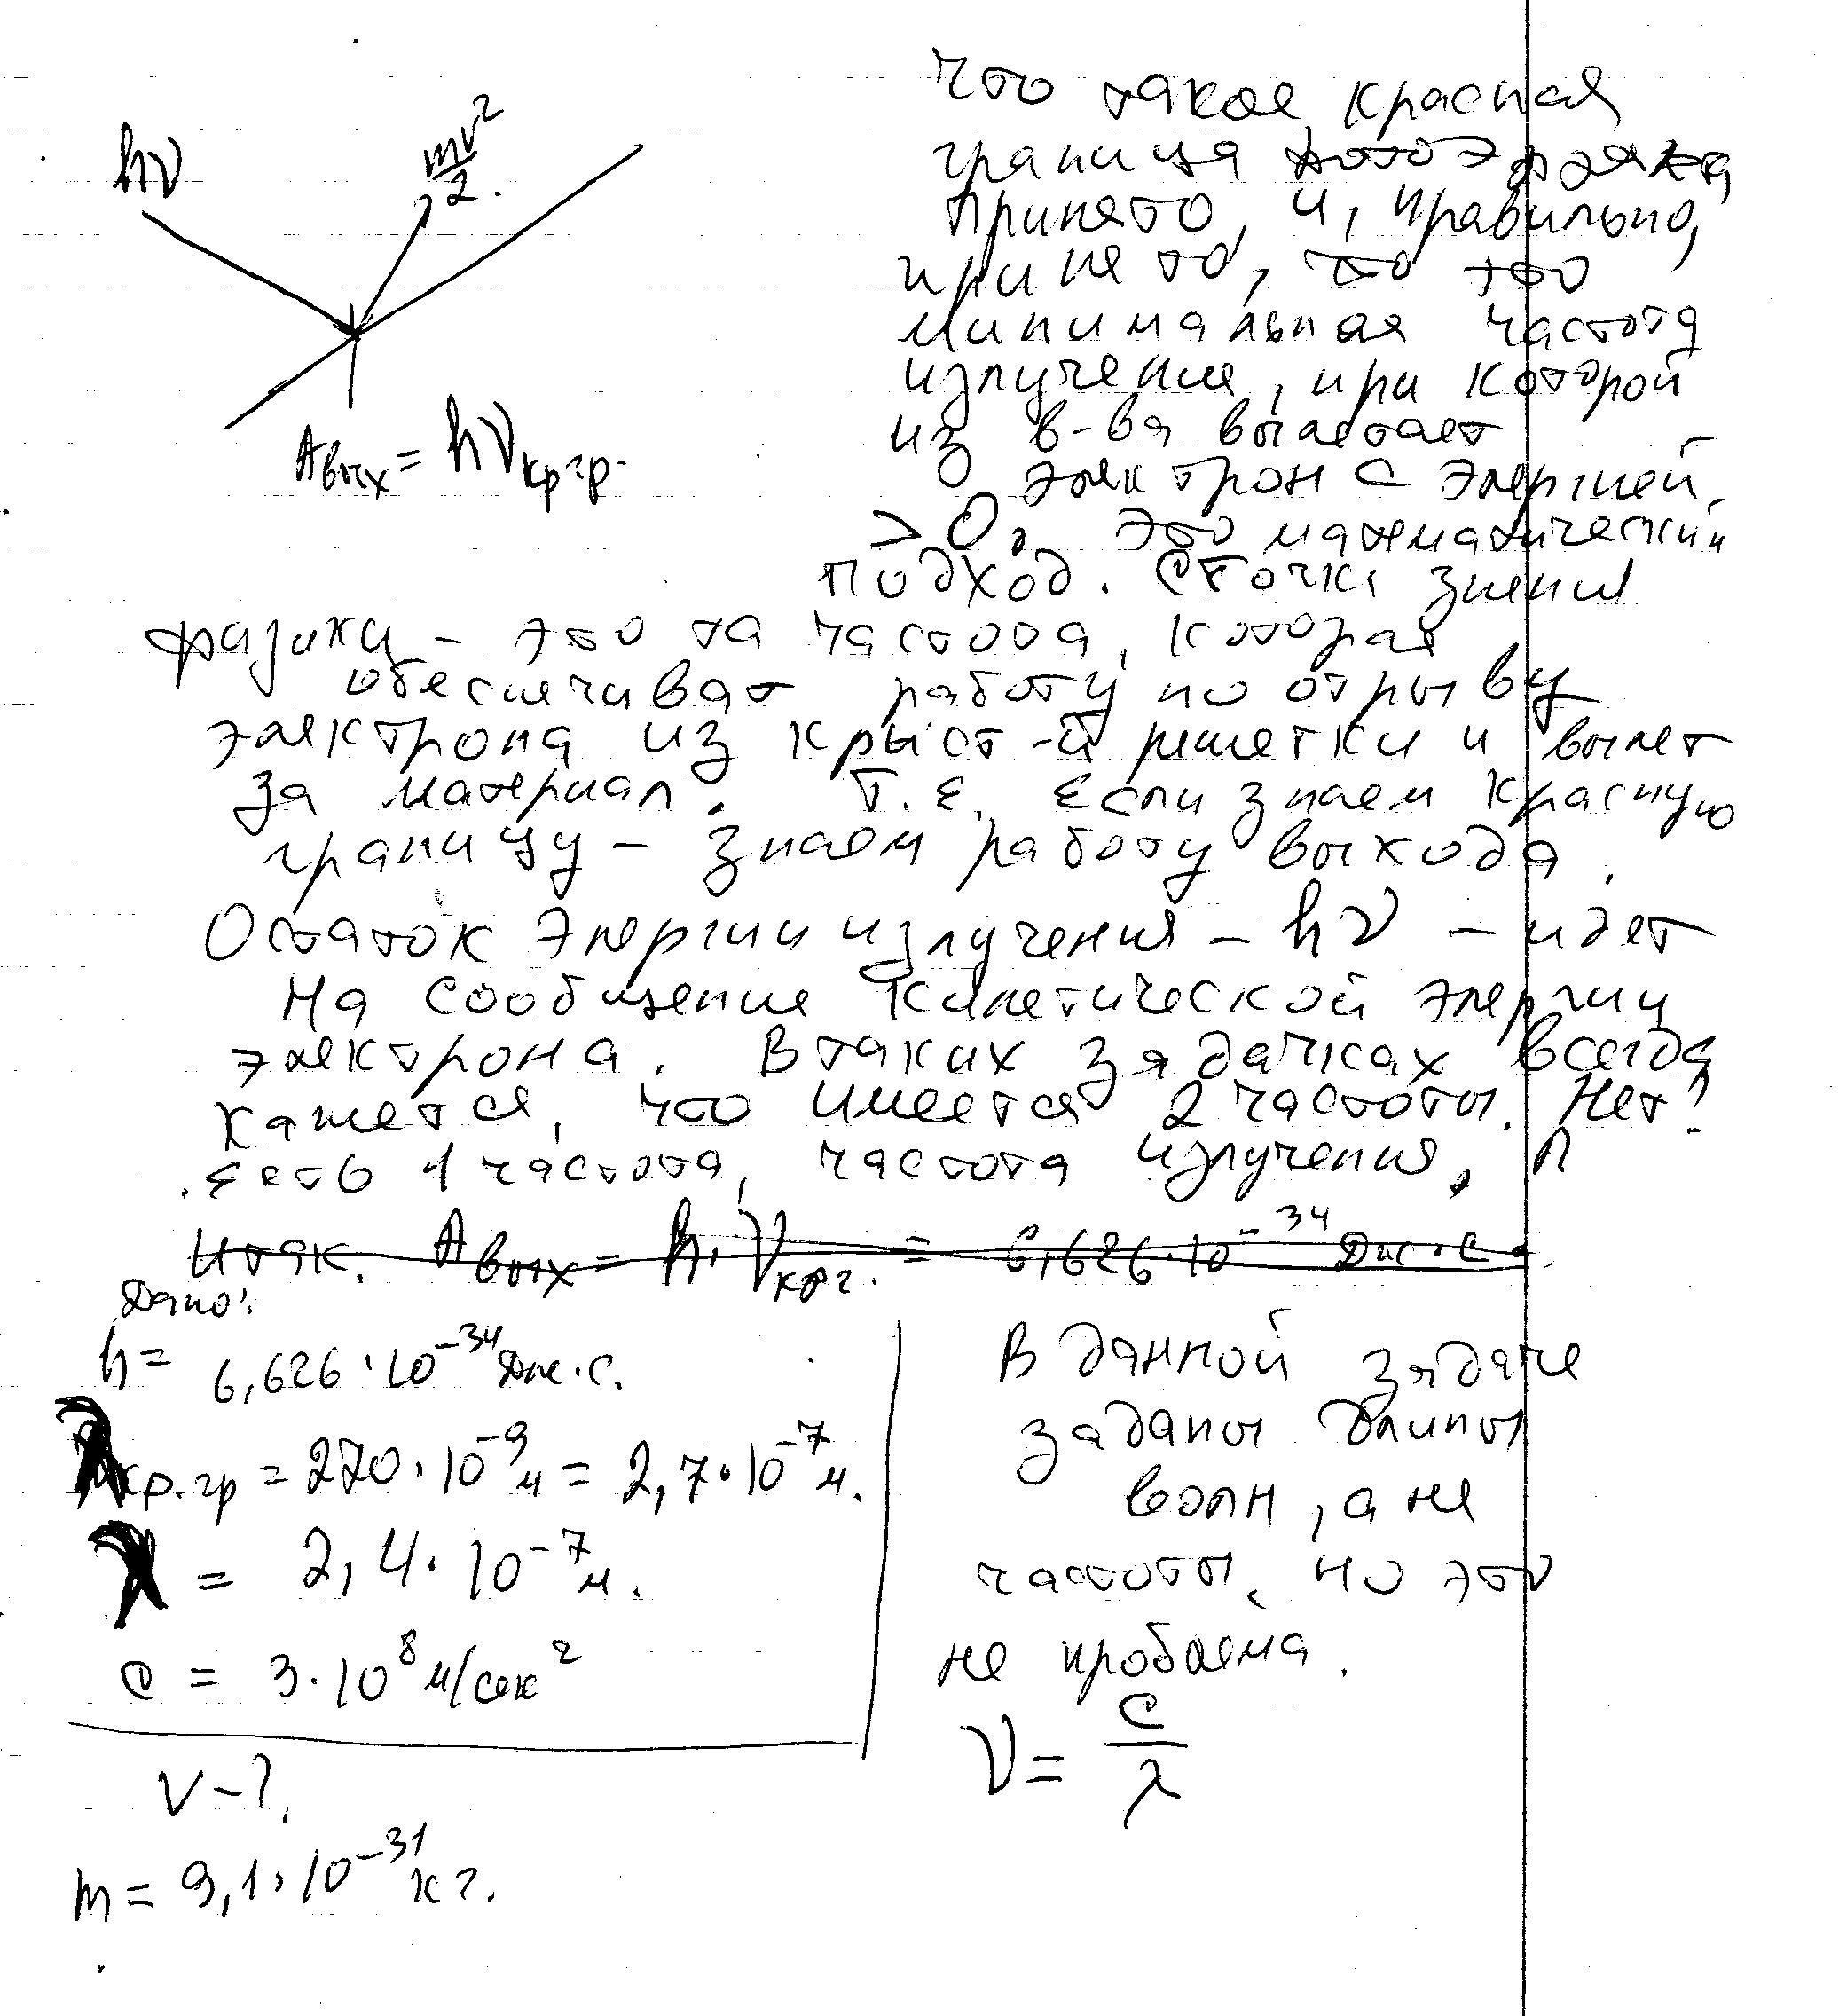 hν
mv²/2.
Aвых = hνкр.гр.
Что такое красная
граница фотоэффекта
принято, и, правильно,
принято, что это
минимальная частота
излучения, при которой
из в-ва вылетает
электрон с энергией.
> 0, это математический
подход. С точки зрения
физики – это та частота, которая
обеспечивает работу по отрыву
электрона из крист-й решетки и вылет
за материал. Т.Е. Если знаем красную
границу – знаем работу выхода.
Остаток энергии излучения – hν – идет
на сообщение кинетической энергии
электрона. В таких задачках всегда
кажется, что имеется 2 частоты. Нет!
Есть 1 частота, частота излучения. А
Итак. Aвых = h·νкр г. = 6,626·10⁻³⁴ Дж·с
Дано:
h = 6,626·10⁻³⁴ Дж·с.
λкр.гр = 270·10⁻⁹м = 2,7·10⁻⁷м.
λ = 2,4·10⁻⁷м.
c = 3·10⁸ м/сек²
v – ?
m = 9,1·10⁻³¹ кг.
В данной задаче
заданы длины
волн, а не
частоты. Но это
не проблема.
ν = c/λ